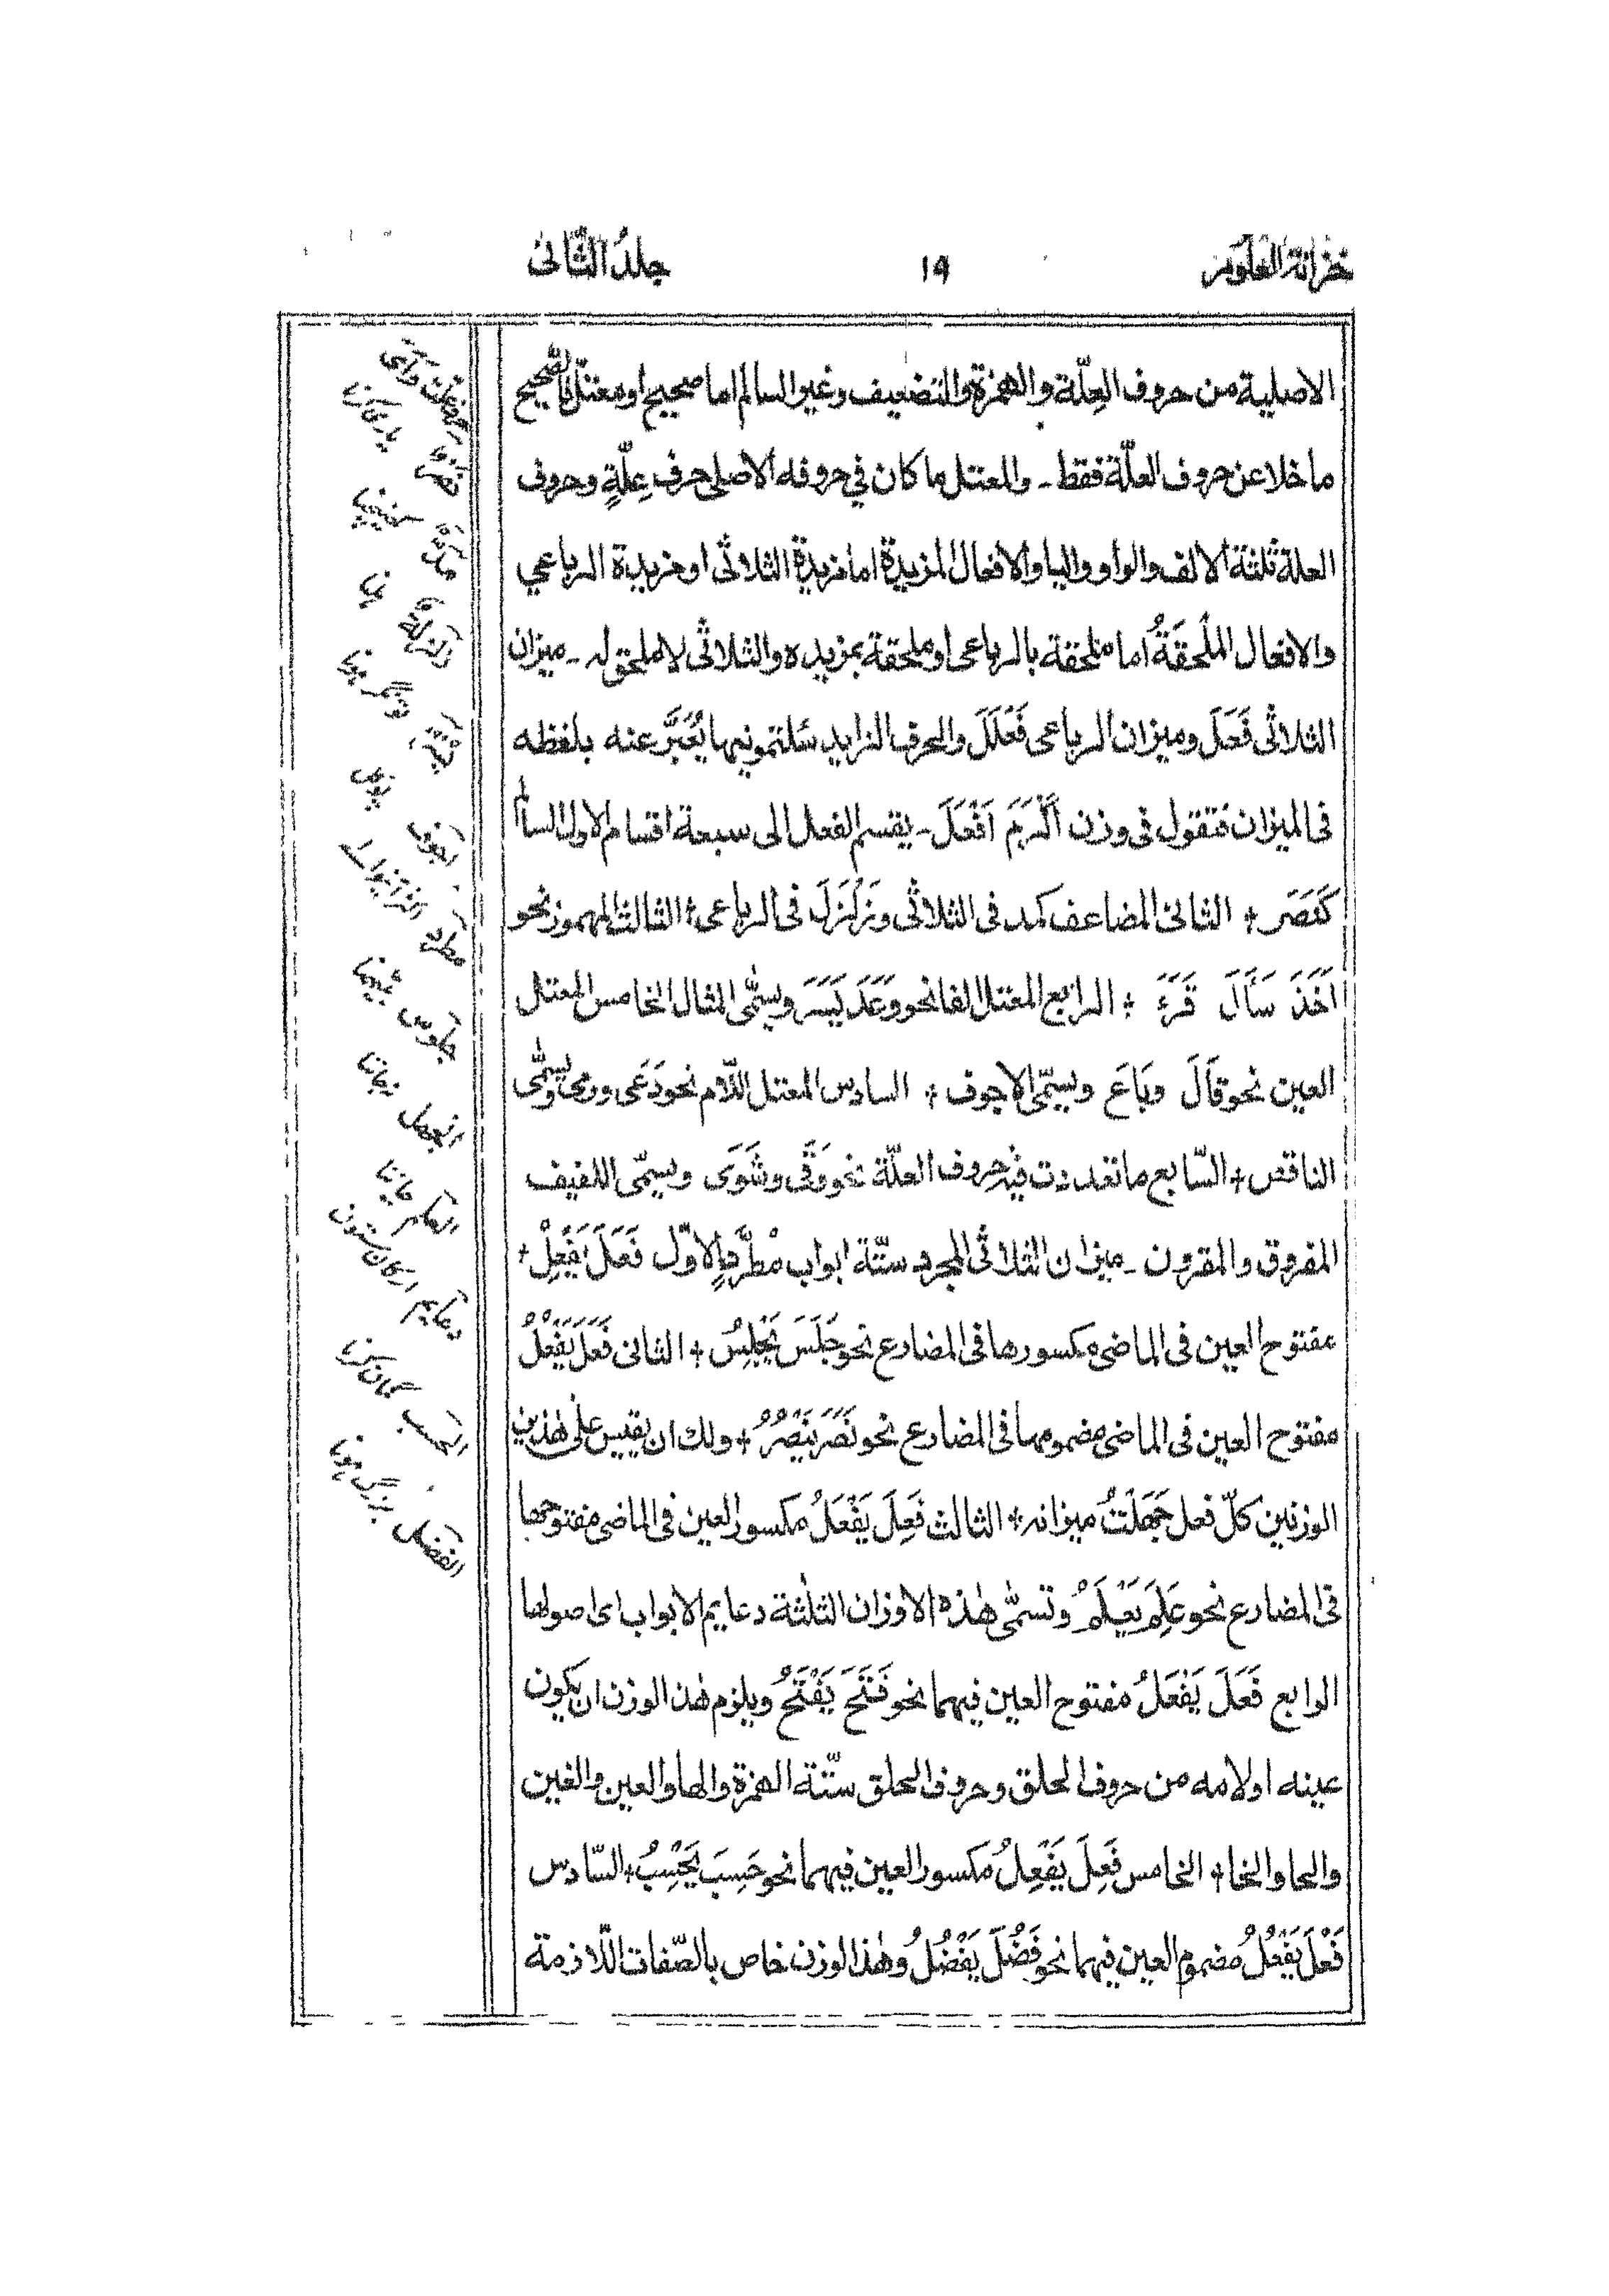 خزانة العلوم
١٩
جلد الثّانی
الاصلية من حروف العِلّة والهمزة والتضعيف وغير السالم اما صحيح او معتلّ فالصّحيح
ما خلا عن حروف العلّة فقط ـ والمعتل ما كان في حروفه الاصلى حرف عِلّةٍ وحروف
العلة ثلثة الالف والواو واليا والافعال المزيدة اما مزيدة الثلاثى او مزيدة الرباعي
والافعال الملْحقَةُ اما ملحقة بالرباعى او ملحقة بمزيده والثلاثى لا ملحق له ـ ميزان
الثلاثى فَعَلَ وميزان الرباعى فَعْلَلَ والحرف الزايد سئلتمونيها يُعَبَّر عنه بلفظه
فى الميزان فتقول فى وزن اَكْرَمَ اَفْعَلَ ـ يقسم الفعل الى سبعة اقسام الاول السالم
كَنَصَر ÷ الثانى المضاعف كمد فى الثلاثى وزَلْزَلَ فى الرباعى ÷ الثالث المهموز نحو
اَخَذَ سَأَلَ قَرَءَ ÷ الرابع المعتل الفا نحو وَعَدَ يَسَرَ ويسمّى المثال الخامس المعتل
العين نحو قَالَ وبَاعَ ويسمّى الاجوف ÷ السادس المعتل اللّام نحو دَعَى ورمى ويسمّى
الناقص ÷ السّابع ما تعددت فيه حروف العلّة نحو وَقَى وشَوَى ويسمّى اللفيف
المفروق والمقرون ـ ميزان الثلاثى المجرد ستّة ابواب مطّردٍ الاوّل فَعَلَ يَفْعِلُ ÷
مفتوح العين فى الماضى مكسورها فى المضارع نحو جَلَسَ يَجْلِسُ ÷ الثانى فَعَلَ يَفْعُلُ
مفتوح العين فى الماضى مضمومها فى المضارع نحو نَصَرَ يَنْصُرُ ÷ ولك ان يقيس على هٰذين
الوزنين كلّ فعل جَهَلْتُ ميزانه ÷ الثالث فَعِلَ يَفْعَلُ مكسور العين فى الماضى مفتوحها
فى المضارع نحو عَلِمَ يَعْلَمُ وتسمّى هٰذه الاوزان الثلثة دعايم الابواب اى اصولها
الرابع فَعَلَ يَفْعَلُ مفتوح العين فيهما نحو فَتَحَ يَفْتَحُ ويلزم هٰذ الوزن ان يكون
عينه او لامه من حروف الحلق وحروف الحلق ستّة الهمزة والها والعين والغين
والحا والخا ÷ الخامس فَعِلَ يَفْعِلُ مكسور العين فيهما نحو حَسِبَ يَحْسِبُ ÷ السّادس
فَعْلَ يَفْعُلُ مضموم العين فيهما نحو فَضُلَ يَفْضُلُ وهٰذا الوزن خاص بالصّفات اللّازمة
جلوس بیٹھنا
دعایم ارکان ستون
الحسب گمان کرنا
الفضل بزرگ ہونا